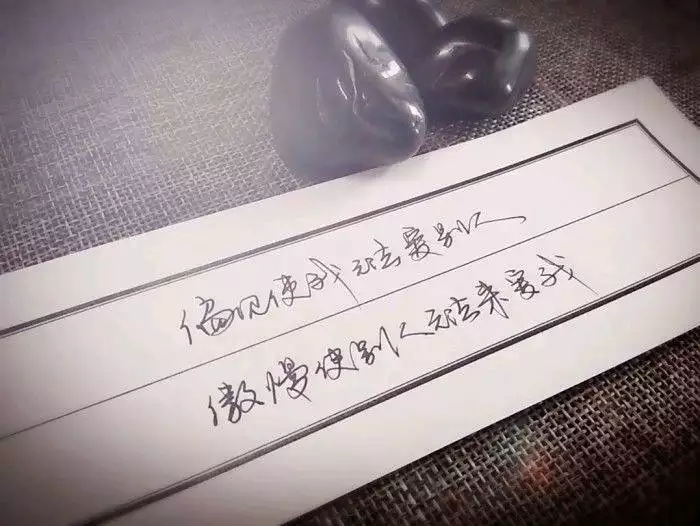 偏见使我无法爱别人
傲慢使别人无法来爱我